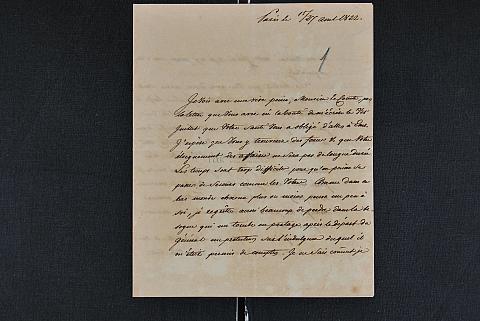 Paris le 15/27 aout 1822.
1
Je vois avec une vive peine, Monsieur le Comte, par
la lettre que Vous avez eû la bonté de m'écrire le
Juillet que Votre santé Vous a obligé d'aller à Ems.
J'espère que Vous y trouverez des forces & que Votre
éloignement des affaires ne sera pas de longue durée.
Les temps sont trop difficiles pour qu'on puisse se
passer de Services comme les Votres. Comme dans ce
bas monde chacun plus ou moins pense un peu à
soi, je regrette aussi beaucoup de perdre dans la be
sogne qui me tombe en partage après le départ du
Général un protecteur sur l'indulgence duquel il
m'étoit permis de compter. Je ne sais comment je